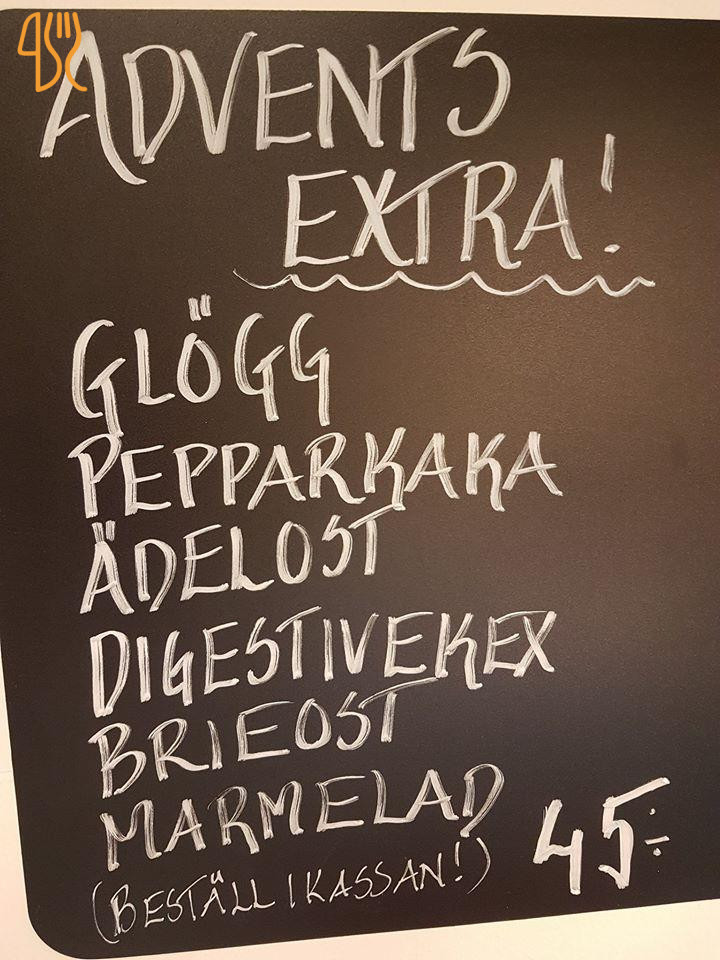 ADVENTS
EXTRA!
GLÖGG
PEPPARKAKA
ÄDELOST
DIGESTIVEKEX
BRIEOST
MARMELAD
(BESTÄLL I KASSAN!) 45:-